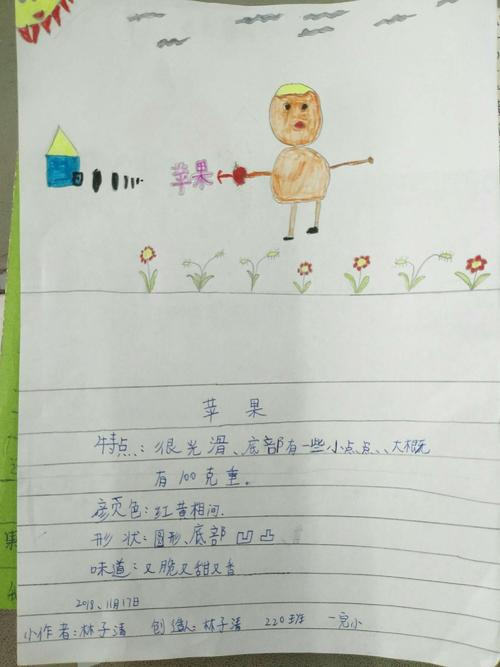 苹果
苹果
特点:很光滑、底部有一些小点点、大概
有100克重.
颜色:红黄相间.
形状:圆形、底部凹凸
味道:又脆又甜又香
2018、11月17日
小作者:林子清 创造人:林子清 220班 一完小